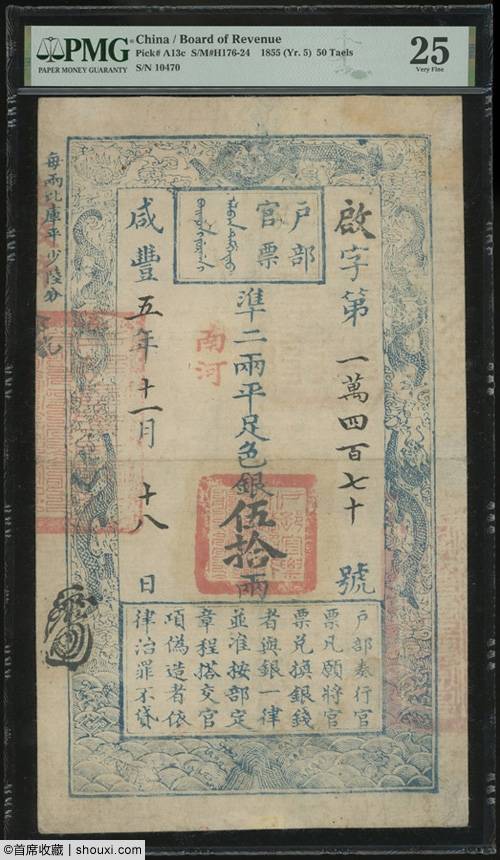 PMG
PAPER MONEY GUARANTY
China / Board of Revenue
Pick# A13c S/M#H176-24 1855 (Yr. 5) 50 Taels
S/N 10470
25
Very Fine
每兩比庫平少陸分
戶部
官票
啟字第一萬四百七十號
準二兩平足色銀伍拾兩
南河
咸豐五年十一月十八日
戶部奏行官
票凡願將官
票兌換銀錢
者與銀一律
並准按部定
章程搭交官
項偽造者依
律治罪不貸
©首席收藏 | shouxi.com